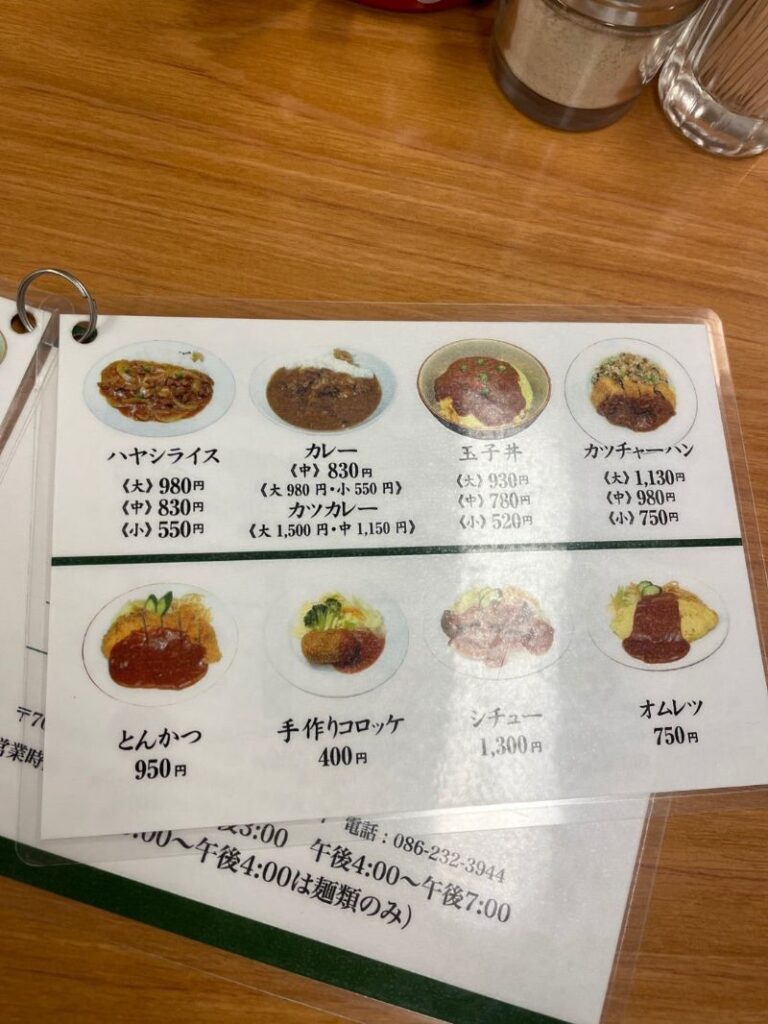 ハヤシライス
《大》980円
《中》830円
《小》550円
カレー
《中》830円
《大 980 円・小 550 円》
カツカレー
《大 1,500 円・中 1,150 円》
玉子丼
《大》930円
《中》780円
《小》520円
カツチャーハン
《大》1,130円
《中》980円
《小》750円
とんかつ
950円
手作りコロッケ
400円
シチュー
1,300円
オムレツ
750円
〒70
営業時
電話：086-232-3944
3:00 午後4:00～午後7:00
:00～午後4:00は麺類のみ)